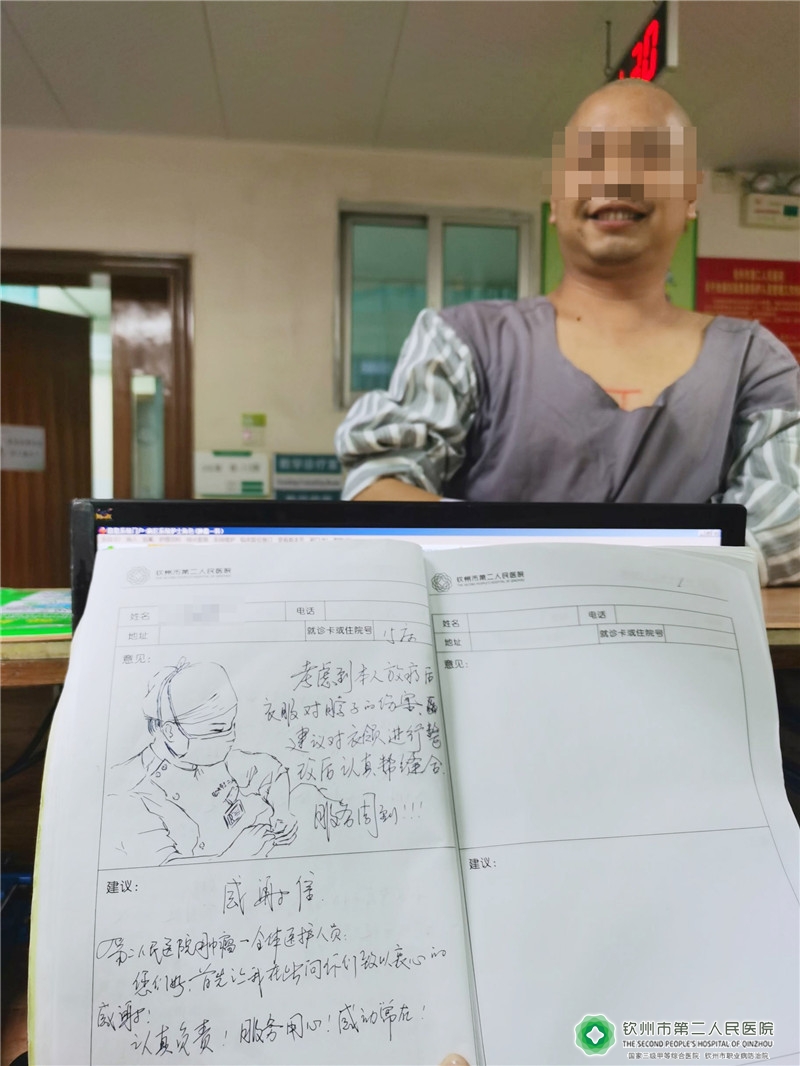 钦州市第二人民医院
姓名
电话
地址
就诊卡或住院号
意见：
考虑到本人放疗后
衣服对脖子的伤害
建议对衣领进行整
改后认真帮缝合
服务周到!!!
建议：
感谢信
第二人民医院肿瘤一全体医护人员：
您们好：首先让我在此向你们致以衷心的
感谢！
认真负责！服务用心！感动常在！
钦州市第二人民医院
姓名
电话
地址
就诊卡或住院号
意见：
建议：
钦州市第二人民医院
THE SECOND PEOPLE'S HOSPITAL OF QINZHOU
国家三级甲等综合医院 钦州市职业病防治院